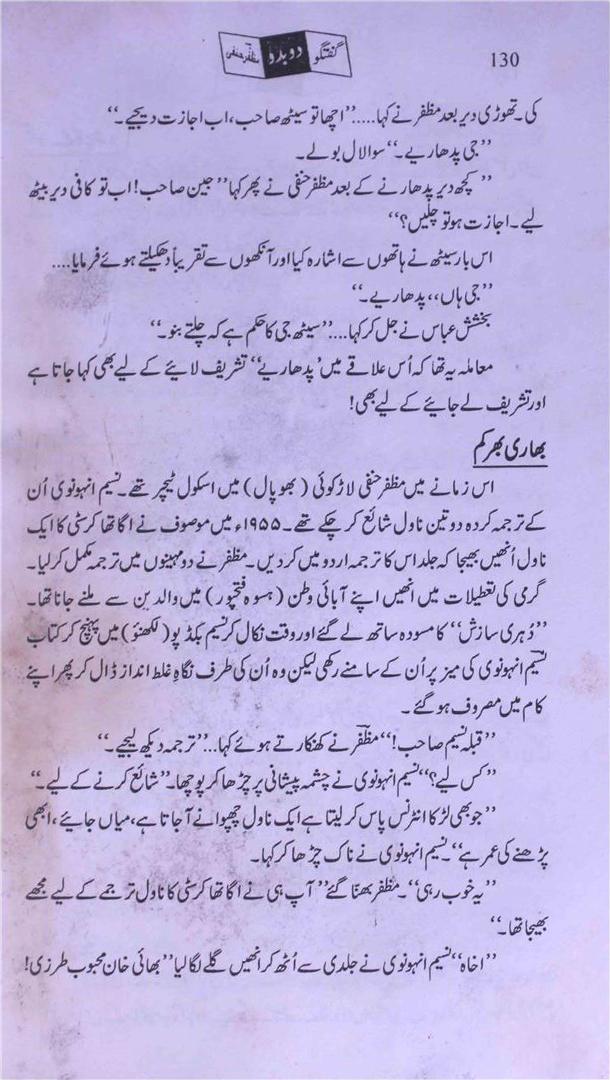 گفتگو دوبدو مظفر حنفی
130
کی۔ تھوڑی دیر بعد مظفر نے کہا.....’’اچھا تو سیٹھ صاحب، اب اجازت دیجیے۔‘‘
’’جی پدھاریے۔‘‘ سوالال بولے۔
’’ کچھ دیر پدھارنے کے بعد مظفر حنفی نے پھر کہا’’ جین صاحب! اب تو کافی دیر بیٹھ
لیے۔ اجازت ہو تو چلیں؟‘‘
اس بار سیٹھ نے ہاتھوں سے اشارہ کیا اور آنکھوں سے تقریباً دھکیلتے ہوئے فرمایا....
’’جی ہاں،، پدھاریے۔‘‘
بخشش عباس نے جل کر کہا....’’سیٹھ جی کا حکم ہے کہ چلتے بنو۔‘‘
معاملہ یہ تھا کہ اُس علاقے میں’ پدھاریے‘‘ تشریف لائیے کے لیے بھی کہا جاتا ہے
اور تشریف لے جائیے کے لیے بھی!
بھاری بھرکم
اس زمانے میں مظفر حنفی لاڑکوئی (بھوپال) میں اسکول ٹیچر تھے۔ نسیم انہونوی اُن
کے ترجمہ کردہ دو تین ناول شائع کر چکے تھے۔ ۱۹۵۵ء میں موصوف نے اگاتھا کرسٹی کا ایک
ناول اُنھیں بھیجا کہ جلد اس کا ترجمہ اردو میں کر دیں۔ مظفر نے دو مہینوں میں ترجمہ مکمل کر لیا۔
گرمی کی تعطیلات میں انھیں اپنے آبائی وطن (ہسوہ فتحپور) میں والدین سے ملنے جانا تھا۔
’’دُہری سازش‘‘ کا مسودہ ساتھ لے گئے اور وقت نکال کر نسیم بکڈپو (لکھنؤ) میں پہنچ کر کتاب
نسیم انہونوی کی میز پر اُن کے سامنے رکھی لیکن وہ اُن کی طرف نگاہِ غلط انداز ڈال کر پھر اپنے
کام میں مصروف ہو گئے۔
’’قبلہ نسیم صاحب!‘‘ مظفر نے کھنکارتے ہوئے کہا...’’ترجمہ دیکھ لیجیے۔‘‘
’’کس لیے؟‘‘ نسیم انہونوی نے چشمہ پیشانی پر چڑھا کر پوچھا۔’’شائع کرنے کے لیے۔‘‘
’’جو بھی لڑکا انٹرنس پاس کر لیتا ہے ایک ناول چھپوانے آ جاتا ہے، میاں جائیے، ابھی
پڑھنے کی عمر ہے‘‘۔ نسیم انہونوی نے ناک چڑھا کر کہا۔
’’یہ خوب رہی‘‘۔ مظفر بھنّا گئے’’ آپ ہی نے اگاتھا کرسٹی کا ناول ترجمے کے لیے مجھے
بھیجا تھا۔‘‘
’’اخاہ‘‘ نسیم انہونوی نے جلدی سے اُٹھ کر انھیں گلے لگا لیا’’ بھائی خان محبوب طرزی!